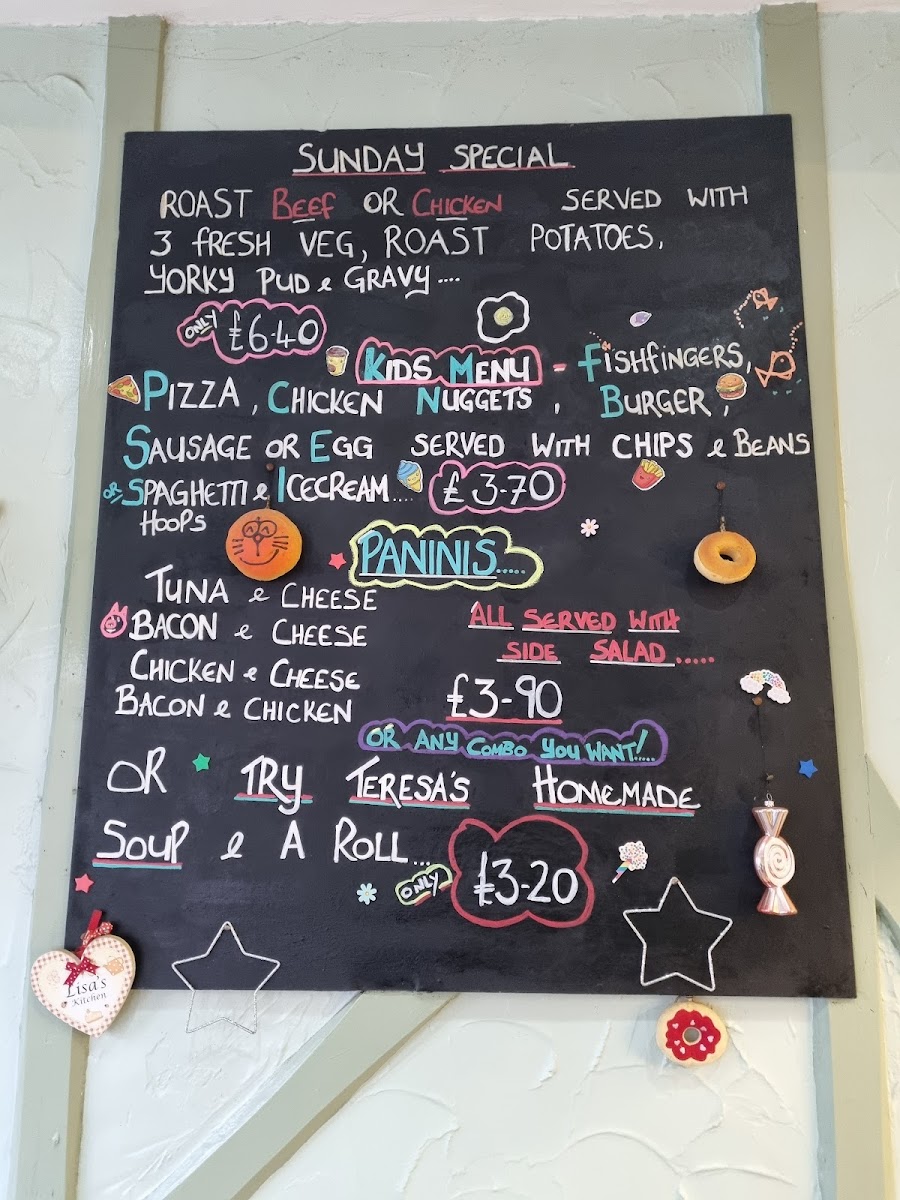 SUNDAY SPECIAL
ROAST BEEF OR CHICKEN SERVED WITH
3 FRESH VEG, ROAST POTATOES,
YORKY PUD & GRAVY....
ONLY £6-40
KIDS MENU - FISHFINGERS,
PIZZA, CHICKEN NUGGETS, BURGER,
SAUSAGE OR EGG SERVED WITH CHIPS & BEANS
OR SPAGHETTI & ICECREAM.... £3-70
HOOPS
PANINIS.....
TUNA & CHEESE
BACON & CHEESE
CHICKEN & CHEESE
BACON & CHICKEN
ALL SERVED WITH
SIDE SALAD.....
£3-90
OR ANY COMBO YOU WANT!....
OR TRY TERESA'S HOMEMADE
SOUP & A ROLL...
ONLY £3-20
Lisa's
Kitchen